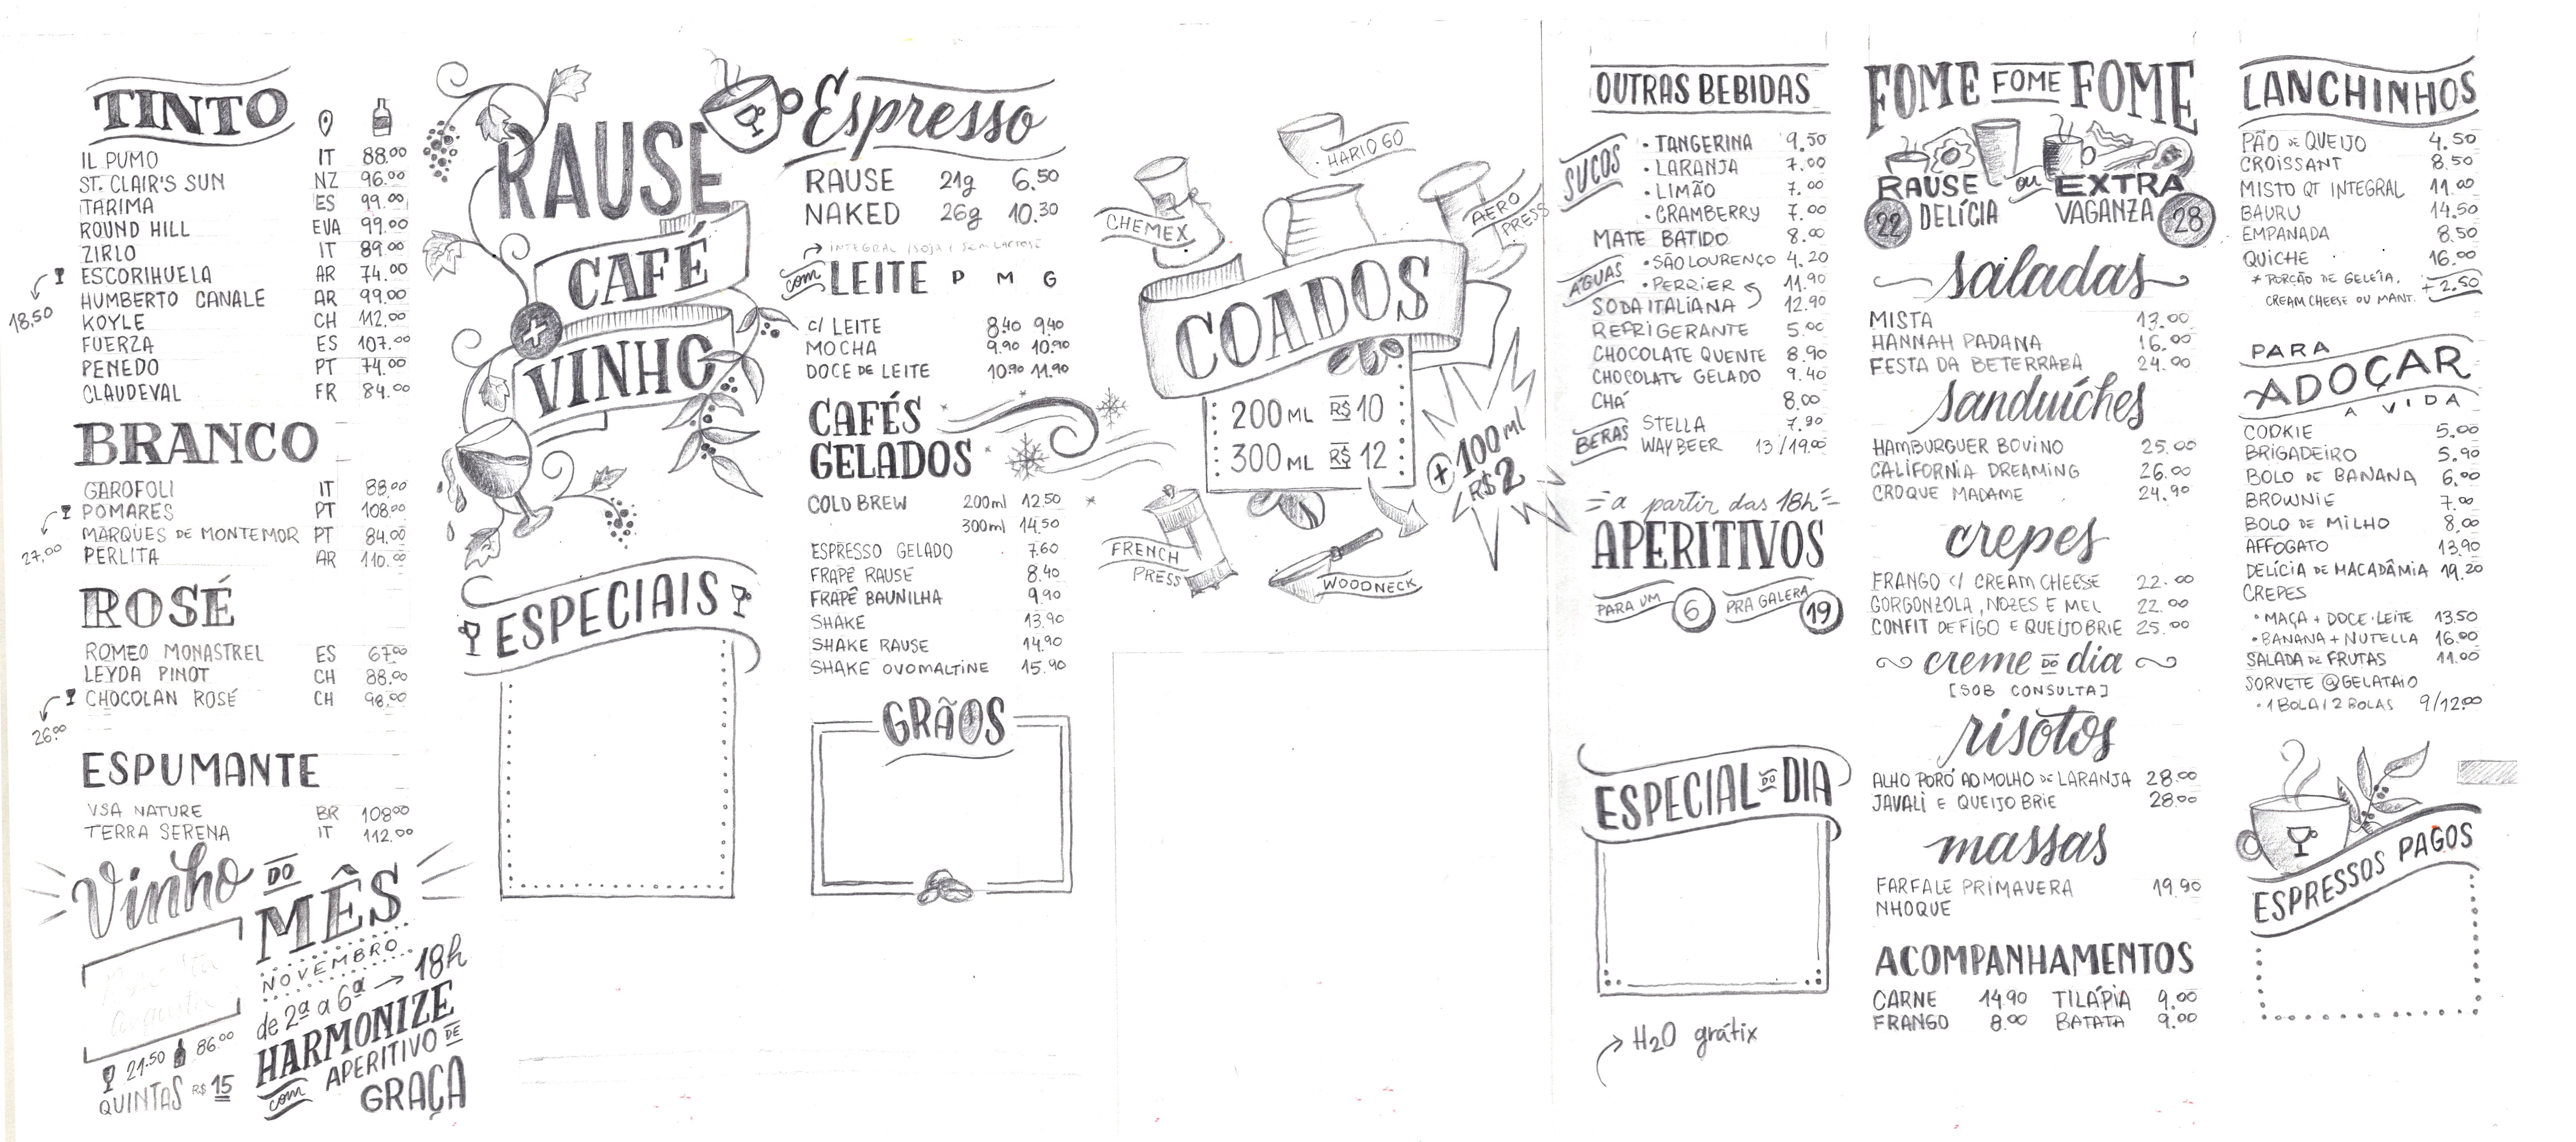 TINTO
IL PUMO IT 88.00
ST. CLAIR'S SUN NZ 96.00
TARIMA ES 99.00
ROUND HILL EUA 99.00
ZIRLO IT 89.00
ESCORIHUELA AR 74.00
18,50
HUMBERTO CANALE AR 99.00
KOYLE CH 112.00
FUERZA ES 107.00
PENEDO PT 74.00
CLAUDEVAL FR 84.00
BRANCO
GAROFOLI IT 88.00
POMARES PT 108.00
27,00
MARQUES DE MONTEMOR PT 84.00
PERLITA AR 110.00
ROSÉ
ROMEO MONASTREL ES 67.00
LEYDA PINOT CH 88.00
CHOCOLAN ROSÉ CH 98.00
26.00
ESPUMANTE
VSA NATURE BR 108.00
TERRA SERENA IT 112.00
Vinho DO
MÊS
NOVEMBRO
21.50 86.00
QUINTAS R$ 15
de 2ª a 6ª → 18h
HARMONIZE
com APERITIVO DE
GRAÇA
RAUSE
CAFÉ
+
VINHO
ESPECIAIS
Espresso
RAUSE 21g 6.50
NAKED 26g 10.30
INTEGRAL / SOJA / SEM LACTOSE
com LEITE P M G
C/ LEITE 8.40 9.40
MOCHA 9.90 10.90
DOCE DE LEITE 10.90 11.90
CAFÉS
GELADOS
COLD BREW 200ml 12.50
300ml 14.50
ESPRESSO GELADO 7.60
FRAPÊ RAUSE 8.40
FRAPÊ BAUNILHA 9.90
SHAKE 13.90
SHAKE RAUSE 14.90
SHAKE OVOMALTINE 15.90
GRÃOS
HARIO GO
CHEMEX
AERO
PRESS
COADOS
200 ML R$ 10
300 ML R$ 12
+ 100 ml
R$ 2
FRENCH
PRESS
WOODNECK
OUTRAS BEBIDAS
SUCOS
• TANGERINA 9.50
• LARANJA 7.00
• LIMÃO 7.00
• CRAMBERRY 7.00
MATE BATIDO 8.00
ÁGUAS
• SÃO LOURENÇO 4.20
• PERRIER 11.90
SODA ITALIANA 12.90
REFRIGERANTE 5.00
CHOCOLATE QUENTE 8.90
CHOCOLATE GELADO 9.40
CHÁ 8.00
BERAS
STELLA 7.90
WAY BEER 13/19.00
a partir das 18h
APERITIVOS
PARA UM 6 PRA GALERA 19
ESPECIAL DO DIA
H2O grátix
FOME FOME FOME
RAUSE ou EXTRA
22 DELÍCIA VAGANZA 28
saladas
MISTA 13.00
HANNAH PADANA 16.00
FESTA DA BETERRABA 24.00
sanduíches
HAMBURGUER BOVINO 25.00
CALIFORNIA DREAMING 26.00
CROQUE MADAME 24.90
crepes
FRANGO C/ CREAM CHEESE 22.00
GORGONZOLA, NOZES E MEL 22.00
CONFIT DE FIGO E QUEIJO BRIE 25.00
creme DO dia
[SOB CONSULTA]
risotos
ALHO PORÓ AO MOLHO DE LARANJA 28.00
JAVALI E QUEIJO BRIE 28.00
massas
FARFALE PRIMAVERA 19.90
NHOQUE
ACOMPANHAMENTOS
CARNE 14.90 TILÁPIA 9.00
FRANGO 8.00 BATATA 9.00
LANCHINHOS
PÃO DE QUEIJO 4.50
CROISSANT 8.50
MISTO QT INTEGRAL 11.00
BAURU 14.50
EMPANADA 8.50
QUICHE 16.00
* PORÇÃO DE GELÉIA,
CREAM CHEESE OU MANT. + 2.50
PARA
ADOÇAR
A VIDA
COOKIE 5.00
BRIGADEIRO 5.90
BOLO DE BANANA 6.00
BROWNIE 7.00
BOLO DE MILHO 8.00
AFFOGATO 13.90
DELÍCIA DE MACADÂMIA 19.20
CREPES
• MAÇA + DOCE • LEITE 13.50
• BANANA + NUTELLA 16.00
SALADA DE FRUTAS 11.00
SORVETE @GELATAIO
• 1 BOLA / 2 BOLAS 9/12.00
ESPRESSOS PAGOS